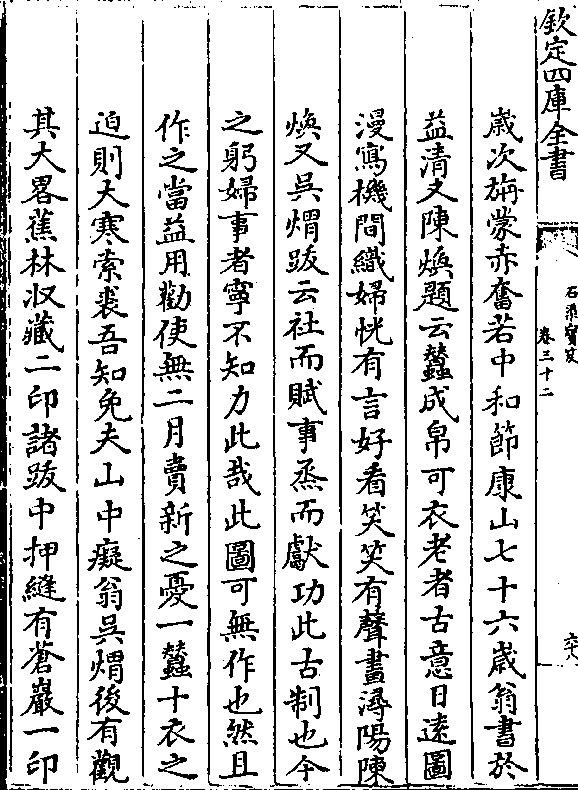 欽定四庫全書
石渠寳笈
卷三十二
六十八
歲次旃蒙赤奮若中和節康山七十六歲翁書於
益清又陳煥題云蠶成帛可衣老者古意日逺圖
漫寫機間織婦恍有言好看笑笑有聲畫潯陽陳
煥又吳熠跋云社而賦事烝而獻功此古制也今
之躬婦事者寧不知力此哉此圖可無作也然且
作之當益用勸使無二月賣新之憂一蠶十衣之
迫則大寒索裘吾知免夫山中癡翁吳熠後有觀
其大畧蕉林収藏二印諸跋中押縫有蒼巖一印